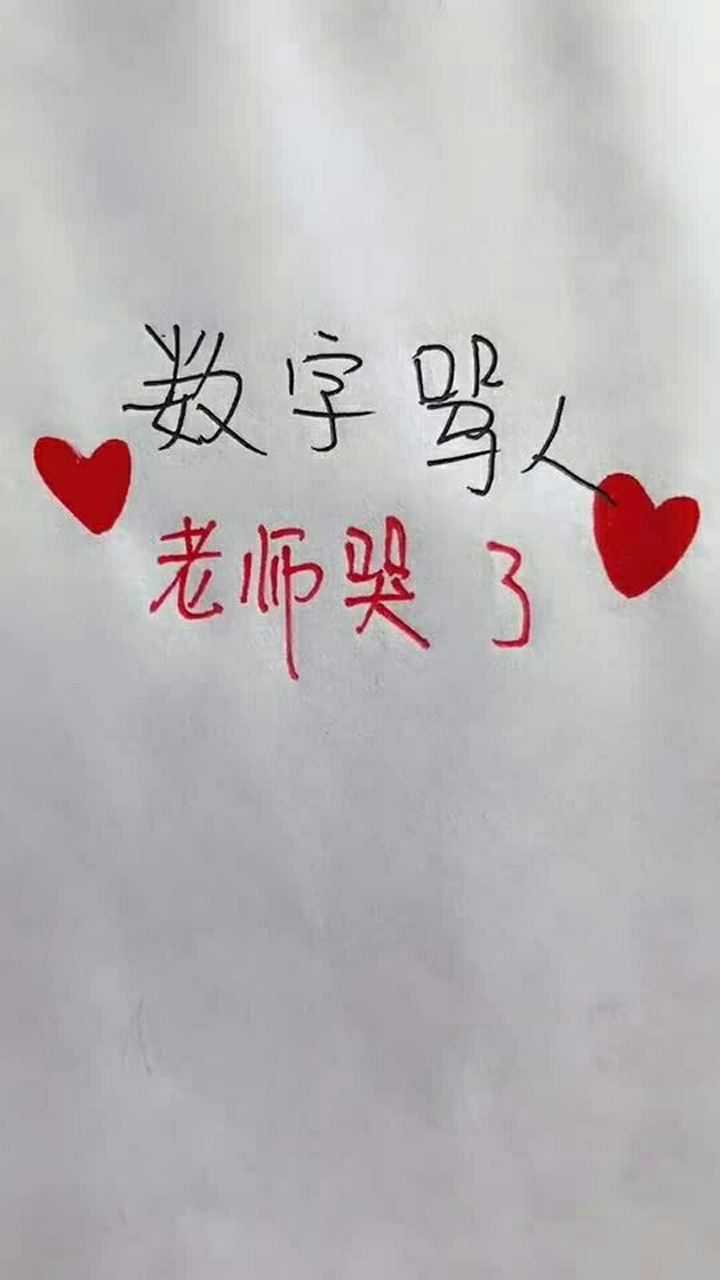 数字骂人
老师哭了